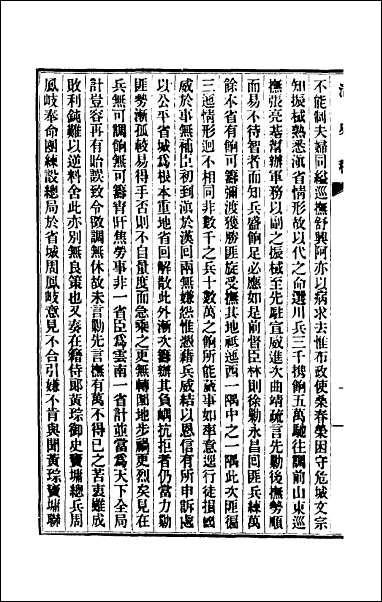 不能制夫婦同縊巡撫舒興阿亦以病求去惟布政使桑春榮困守危城文宗
知振棫熟悉滇省情形故以代之命選川兵三千攜餉五萬馳往調前山東巡
撫張亮基幫辦軍務以副之振棫至先駐宣威進次曲靖疏言先勦後撫勢順
而易不待智者而知兵盛餉足必應如是前督臣林則徐勦永昌回匪兵練萬
餘本省有餉可籌彌渡獲勝匪旋受撫其地祗迤西一隅中之一隅此次匪徧
三迤情形迥不相同非數千之兵十數萬之餉所能蕆事如率意逕行徒損國
威於事無補臣初到滇於漢回兩無嫌怨惟憑藉兵威結以恩信有所申訴處
以公平省城爲根本重地省回解散此外漸次籌辦其負嵎抗拒者仍當力勦
匪勢漸孤較易得手否則不自量度而急乘之更無轉圜地步禍更烈矣見在
兵無可調餉無可籌宵旰焦勞事非一省臣爲雲南一省計並當爲天下全局
計豈容再有貽誤致令徵調無休故未言勦先言撫有萬不得已之苦衷雖成
敗利鈍難以逆料舍此亦別無良策也又奏在籍侍郎黃琮御史竇墉總兵周
鳳岐奉命團練設總局於省城周鳳岐意見不合引嫌不肯與聞黃琮竇墉聯